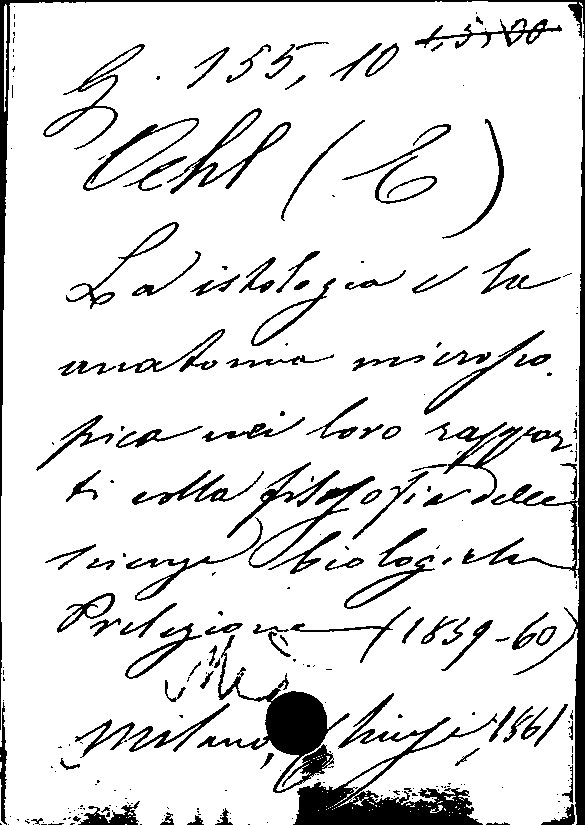 G. 155, 10 15,00
Oehl (E)
La istologia e la
anatomia microsco.
pica nei loro rappor
ti colla filosofia delle
scienze biologiche
Prelezione (1859-60)
Milano, Chiusi, 1861